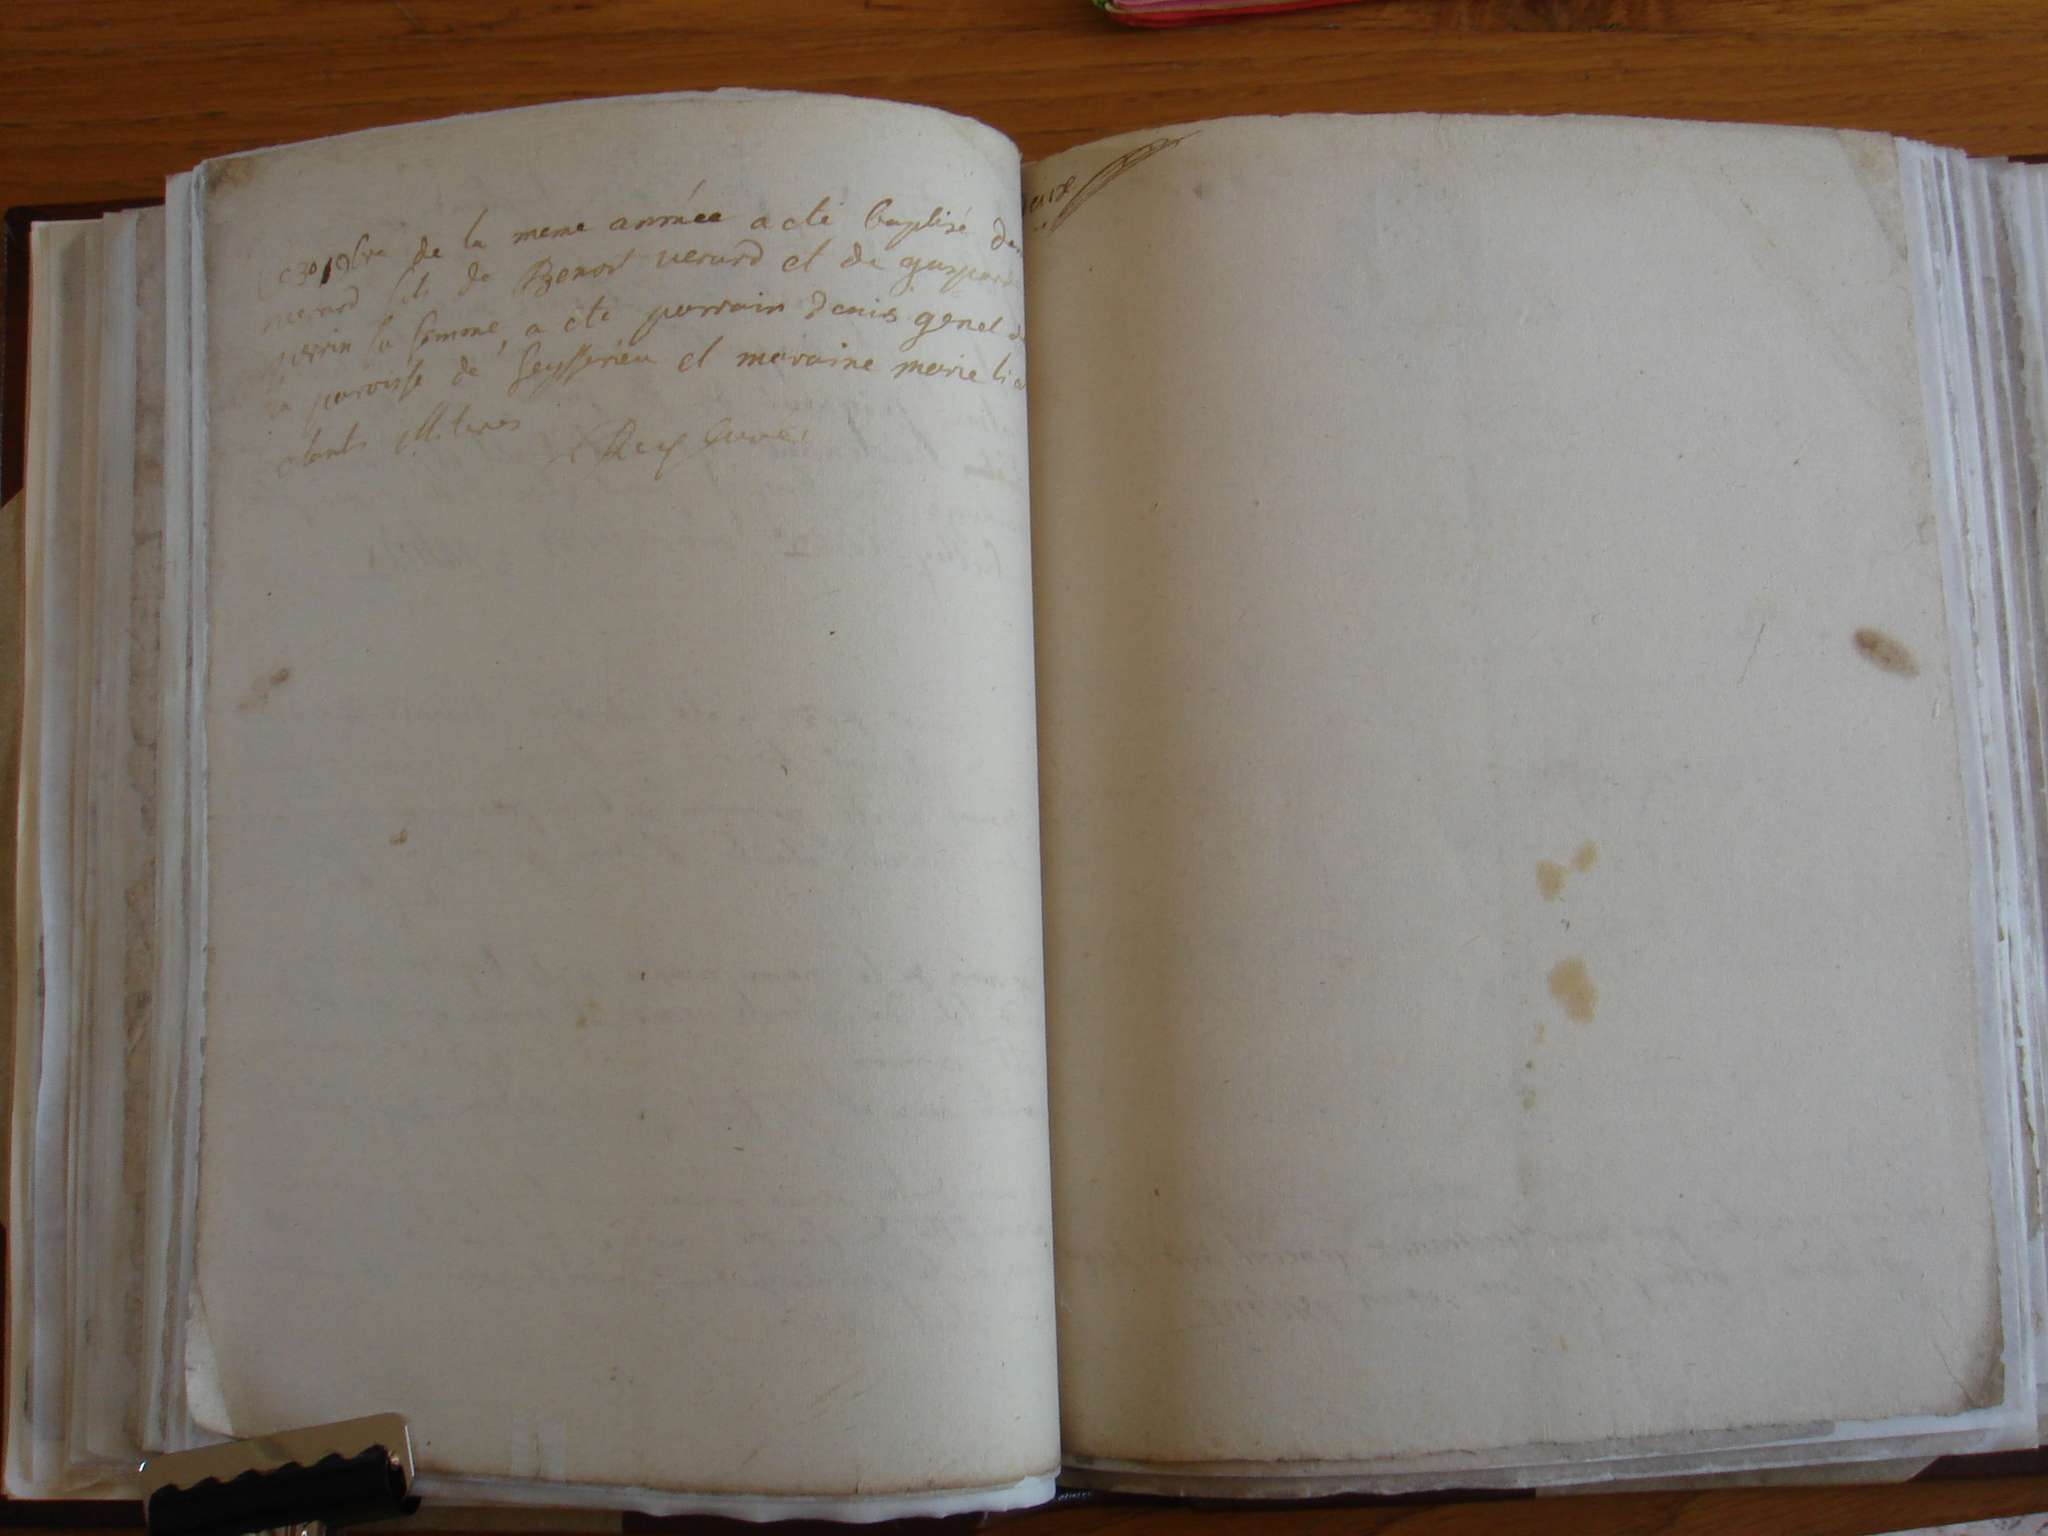 ce 30 9bre de la meme année a eté baptisé
verard fils de Benoit verard et de gasparde
perrin sa femme, a eté parrain Denis genet de
la paroisse de Seyssirieu et maraine marie
etants illiteres Rey Curé